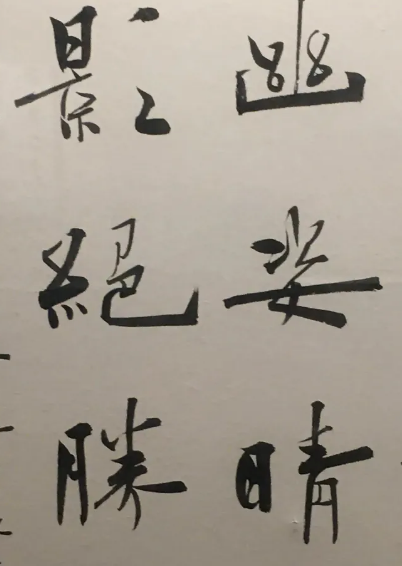 幽姿晴
影絕勝